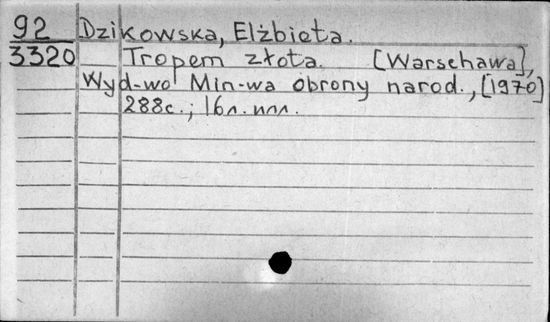 92 Dzikowska, Elżbieta.
3320 Tropem złota. [Warschawa],
Wyd-wo Min-wa obrony narod., [1970]
288c.; 16л. илл.